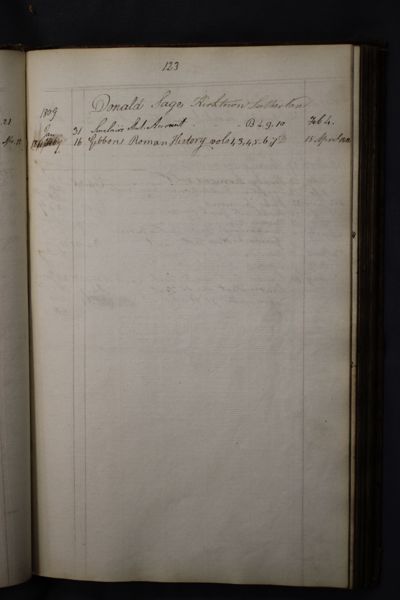 123
Donald Sage Kirktown Sutherland
1809
Jan 31 Sinclair's Stat. Account - B 4. 9. 10 Feb 4.
16 Gibbons Roman History vols 1, 3, 4, 5. 6. 7 15 April
21